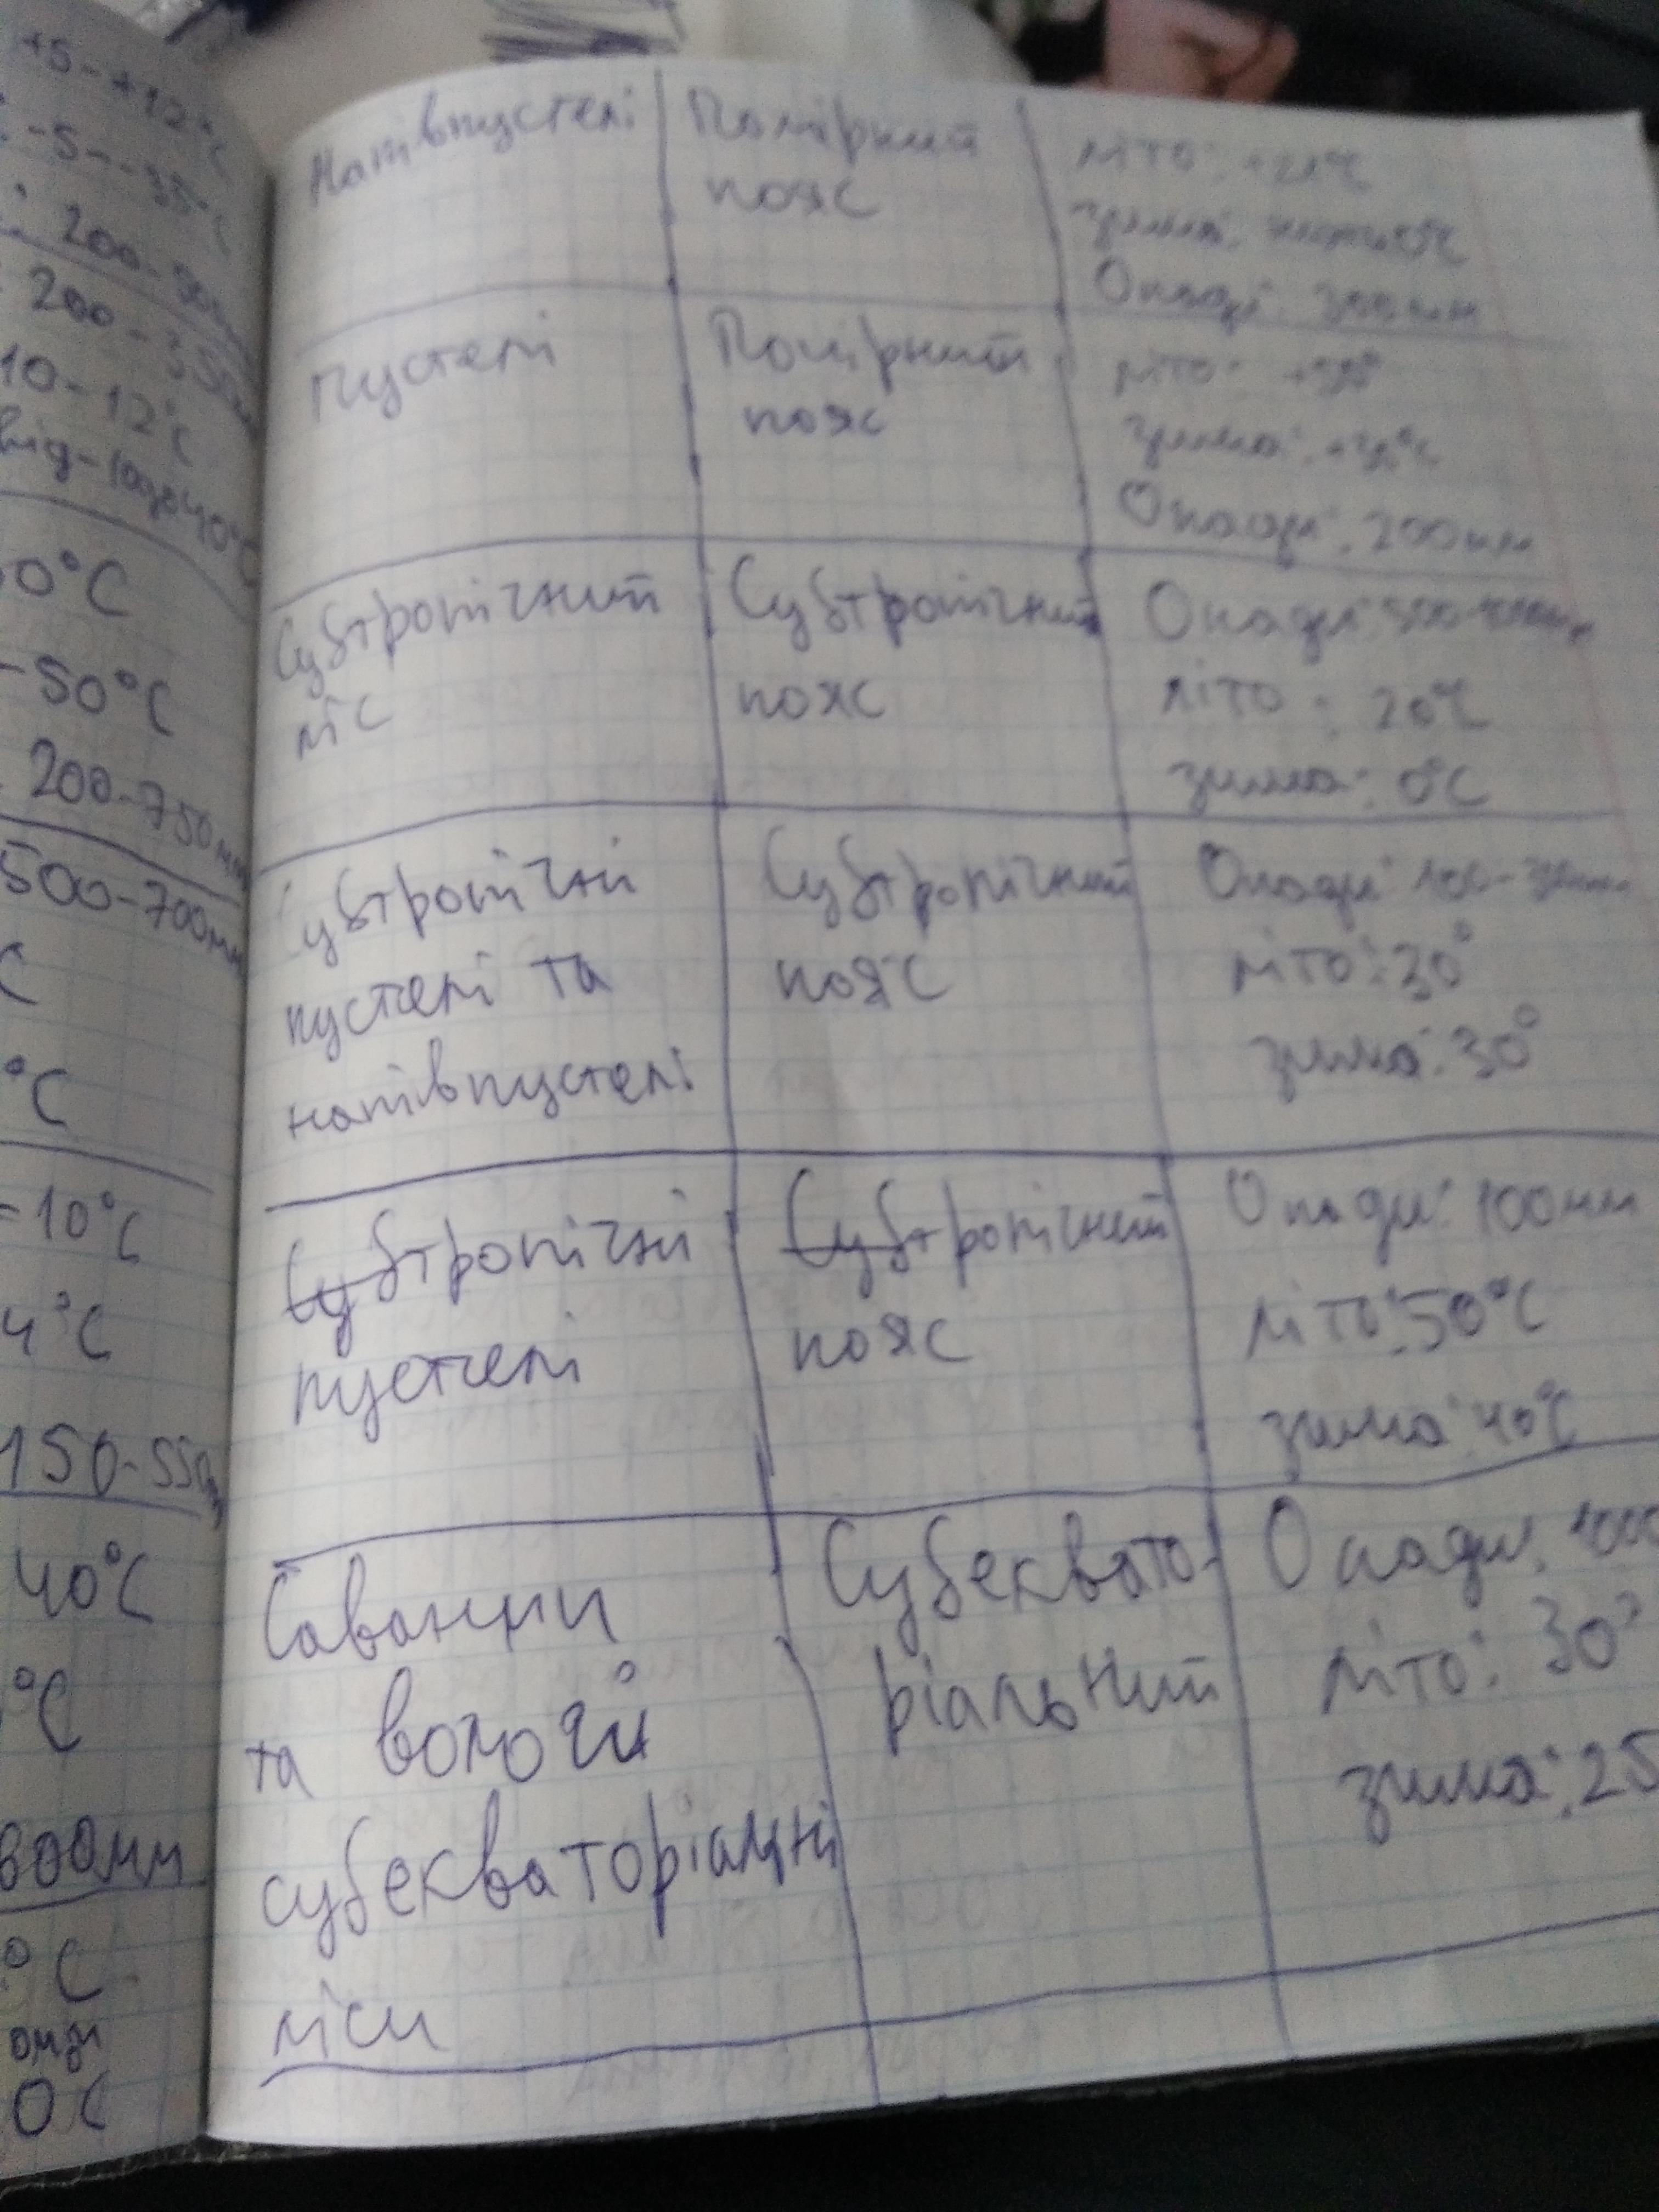 +5-+12°C
-5--35°C
200-
200-350мм
10-12°C
від-10до40°C
0°C
-50°C
200-750мм
500-700мм
C
°C
=10°C
4°C
150-550
40°C
°C
800мм
°C
0C
Напівпустелі
Помірний
пояс
літо:
зима:
Опади: 300мм
Пустелі
Помірний
пояс
літо:
зима:
Опади: 200мм
Субтропічний
ліс
Субтропічний
пояс
Опади:
літо: 20°C
зима: 0°C
Субтропічні
пустелі та
напівпустелі
Субтропічний
пояс
Опади: 100-
літо: 30°
зима: 30°
Субтропічні
пустелі
Субтропічний
пояс
Опади: 100мм
літо: 50°C
зима: 40°C
Саванни
та вологі
субекваторіальні
ліси
Субеквато-
ріальний
Опади: 1000
літо: 30°
зима: 25